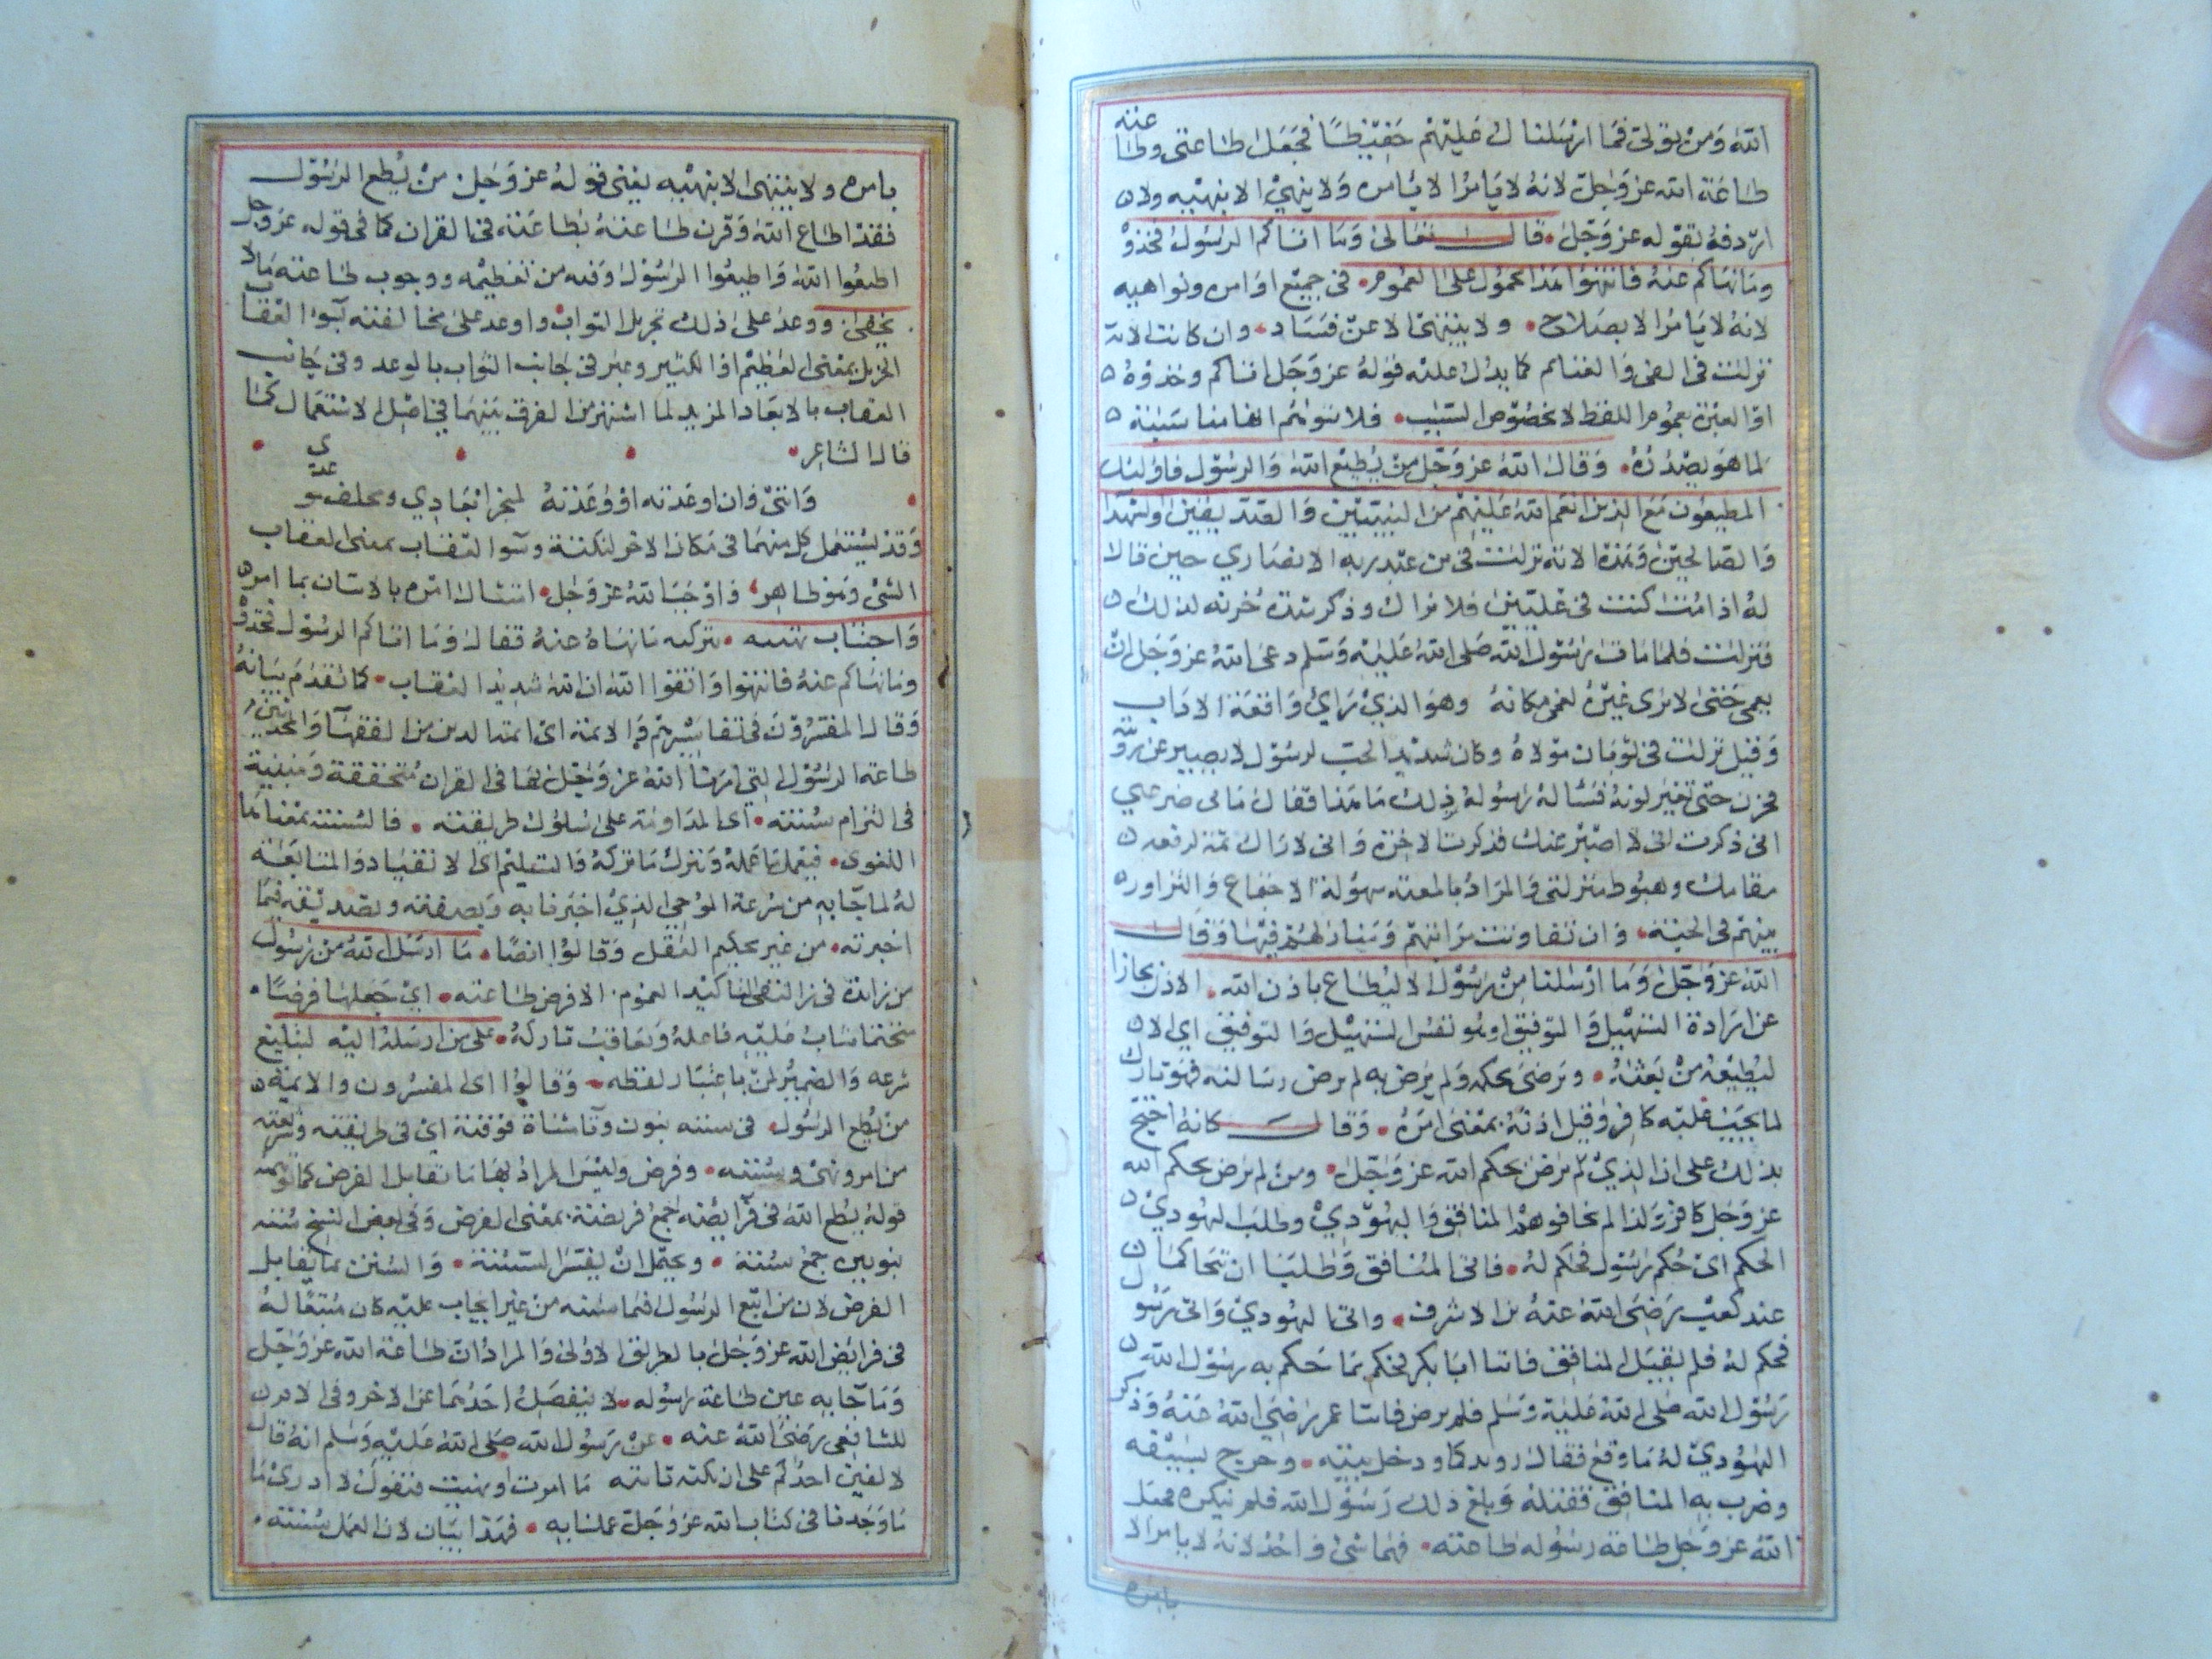 الله ومن تولى فما ارسلناك عليهم حفيظا فجعل طاعتي وطا
عنه
طاعة الله عز وجل لانه لا يامر الا يامره ولا ينهي الا بنهيه ولا
اردفه بقوله عز وجل قال تعالى وما اتاكم الرسول فخذو
وما نهاكم عنه فانتهوا هذا محمول على العموم في جميع اوامره ونواهيه
لانه لا يامر الا بصلاح ولا ينتهى الا عن فساد وان كانت الاية
نزلت في الفئ والغنائم كما يدل عليه قوله عز وجل اتاكم وخذوه
اذ العبرة بعموم اللفظ لا بخصوص السبب فلا يتوهم
لما هو بصدده وقال الله عز وجل من يطيع الله والرسول فاولئك
المطيعون مع الذين انعم الله عليهم من النبيين والصديقين والشهدا
والصالحين وهذه الاية نزلت في من عبد ربه الانصاري حين قال
له اذا مت كنت في عليين فلا نراك وذكر شدة حزنه لذلك
فنزلت فلما مات رسول الله صلى الله عليه وسلم دعى الله عز وجل ان
يعمى حتى لا يرى غيره لعمي مكانه وهو الذي راي واقعة الاداب
وقيل نزلت في ثوبان مولاه وكان شديد الحب لرسول لا يصبير عن رؤيته
فحزن حتى تغير لونه فساله رسوله ذلك ما هذا فقال ما بي ضر علي
اني ذكرت اني لا اصبر عنك فذكرت الاخرة واني لا اراك ثمة لرفعه
مقامك وهبوط منزلتي والمراد بالمعية سهولة الاجتماع والتزاور
بينهم في الجنة وان تفاوتت مراتبهم ومنازلهم فيها وقال
الله عز وجل وما ارسلنا من رسول الا ليطاع باذن الله الاذن مجاز
عن ارادة التسهيل والتوفيق او هو نفس التسهيل والتوفيق اي الا
ليطيعه من بعثه ويرضى بحكمه ولم يرض به لم يرض رسالته فهو تارك
لما يجب عليه كافر وقيل اذنه بمعنى امره وقال كانه احتج
بذلك على ان الذي لم يرض بحكم الله عز وجل ومن لم يرض بحكم الله
عز وجل كافر ولذا لم المنافق واليهودي وطلب اليهودي
الحكم اي حكم رسول فحكم له فاتى المنافق وطلبا ان تحاكما
عند كعب رضي الله عنه بن الاشرف واتى اليهودي واتى رسول
فحكم له فلم يقبل المنافق فاتيا ابا بكر فحكم بما حكم به رسول الله
رسول الله صلى الله عليه وسلم فلم يرض فاتيا عمر رضي الله عنه وذكر
اليهودي له ما وقع فقال رويدكما ودخل بيته وخرج بسيفه
وضرب به المنافق فقتله وبلغ ذلك رسول الله فلم ينكره فجعل
الله عز وجل طاعة رسوله طاعته فهما شئ واحد لانه لا يامر الا
بامره
بامره ولا ينتهى الا بنهيه يعني قوله عز وجل من يطع الرسول
فقد اطاع الله وقرن طاعته بطاعته في القران كما في قوله عز وجل
اطيعوا الله واطيعوا الرسول وفيه من تعظيمه ووجوب طاعته مالا
يخفى ووعد على ذلك بجزيل الثواب واوعد على مخالفته بسوء العقاب
الجزيل بمعنى العظيم او الكثير وعبر في جانب الثواب بالوعد وفي جانب
العقاب بالايعاد المزيد لما اشتهر من الفرق بينهما في اصل الاستعمال كما
قال الشاعر
واني وان اوعدته او وعدته لمنجز ايعادي ومخلف موعدي
وقد يستعمل كل منهما في مكان الاخر لنكتة وسوا العقاب بمعنى العقاب
السئ وهو ظاهر واوجب الله عز وجل امتثال امره بالاتيان بما امره
واجتناب نهيه بتركه ما نهاه عنه فقال وما اتاكم الرسول فخذو
وما نهاكم عنه فانتهوا واتقوا الله ان الله شديد العقاب كما تقدم بيانه
وقال المفسرون في تفاسيرهم والايمة اي ايمة الدين من الفقها والمحدثين
طاعة الرسول التي امرنا الله عز وجل بها في القران متحققة ومبنية
في التزام سنته اي المداومة على سلوك طريقته فالسنة بمعناها
اللغوي فيعمل بما عمله ويترك ما تركه والتسليم اي الانقياد والمتابعة
له لما جآ به من شرعه الموحى الذي اخبرنا به وتصديقه فيما
اخبر به من غير تحكيم العقل وقالوا ايضا ما ارسل الله من رسول
من زائدة في النفي لتاكيد العموم الا فرض طاعته اي جعلها فرضا
متحتما يثاب عليه فاعله ويعاقب تاركه على من ارسله اليه لتبليغ
شرعه والضمير لمن باعتبار لفظه وقالوا اي المفسرون والايمة
من يطع الرسول في سنته بنون وتا مثناة فوقية اي في طريقته وشريعته
من امر ونهى وسنته وفرض وليس المراد بها ما تقابل الفرض كما توهمه
قوله يطع الله في فرآيضه جمع فريضة بمعنى الفرض وفي بعض النسخ سننه
بنونين جمع سنة ويحتمل ان يفسر السنة والسنن بما يقابل
الفرض لان من اتبع الرسول فيما سنه من غير ايجاب عليه كان متبعا له
في فرايض الله عز وجل بالطريق الاولى والمراد ان طاعة الله عز وجل
وما جآ به عين طاعة رسوله لا ينفصل احدهما عن الاخر وفي الام
للشافعي رضي الله عنه عن رسول الله صلى الله عليه وسلم انه قال
لا لفين احدكم على اريكته ما امرت او نهيت فيقول لا ادري ما
ما وجدنا في كتاب الله عز وجل عملنا به فهذا بيان لان العمل بسنته